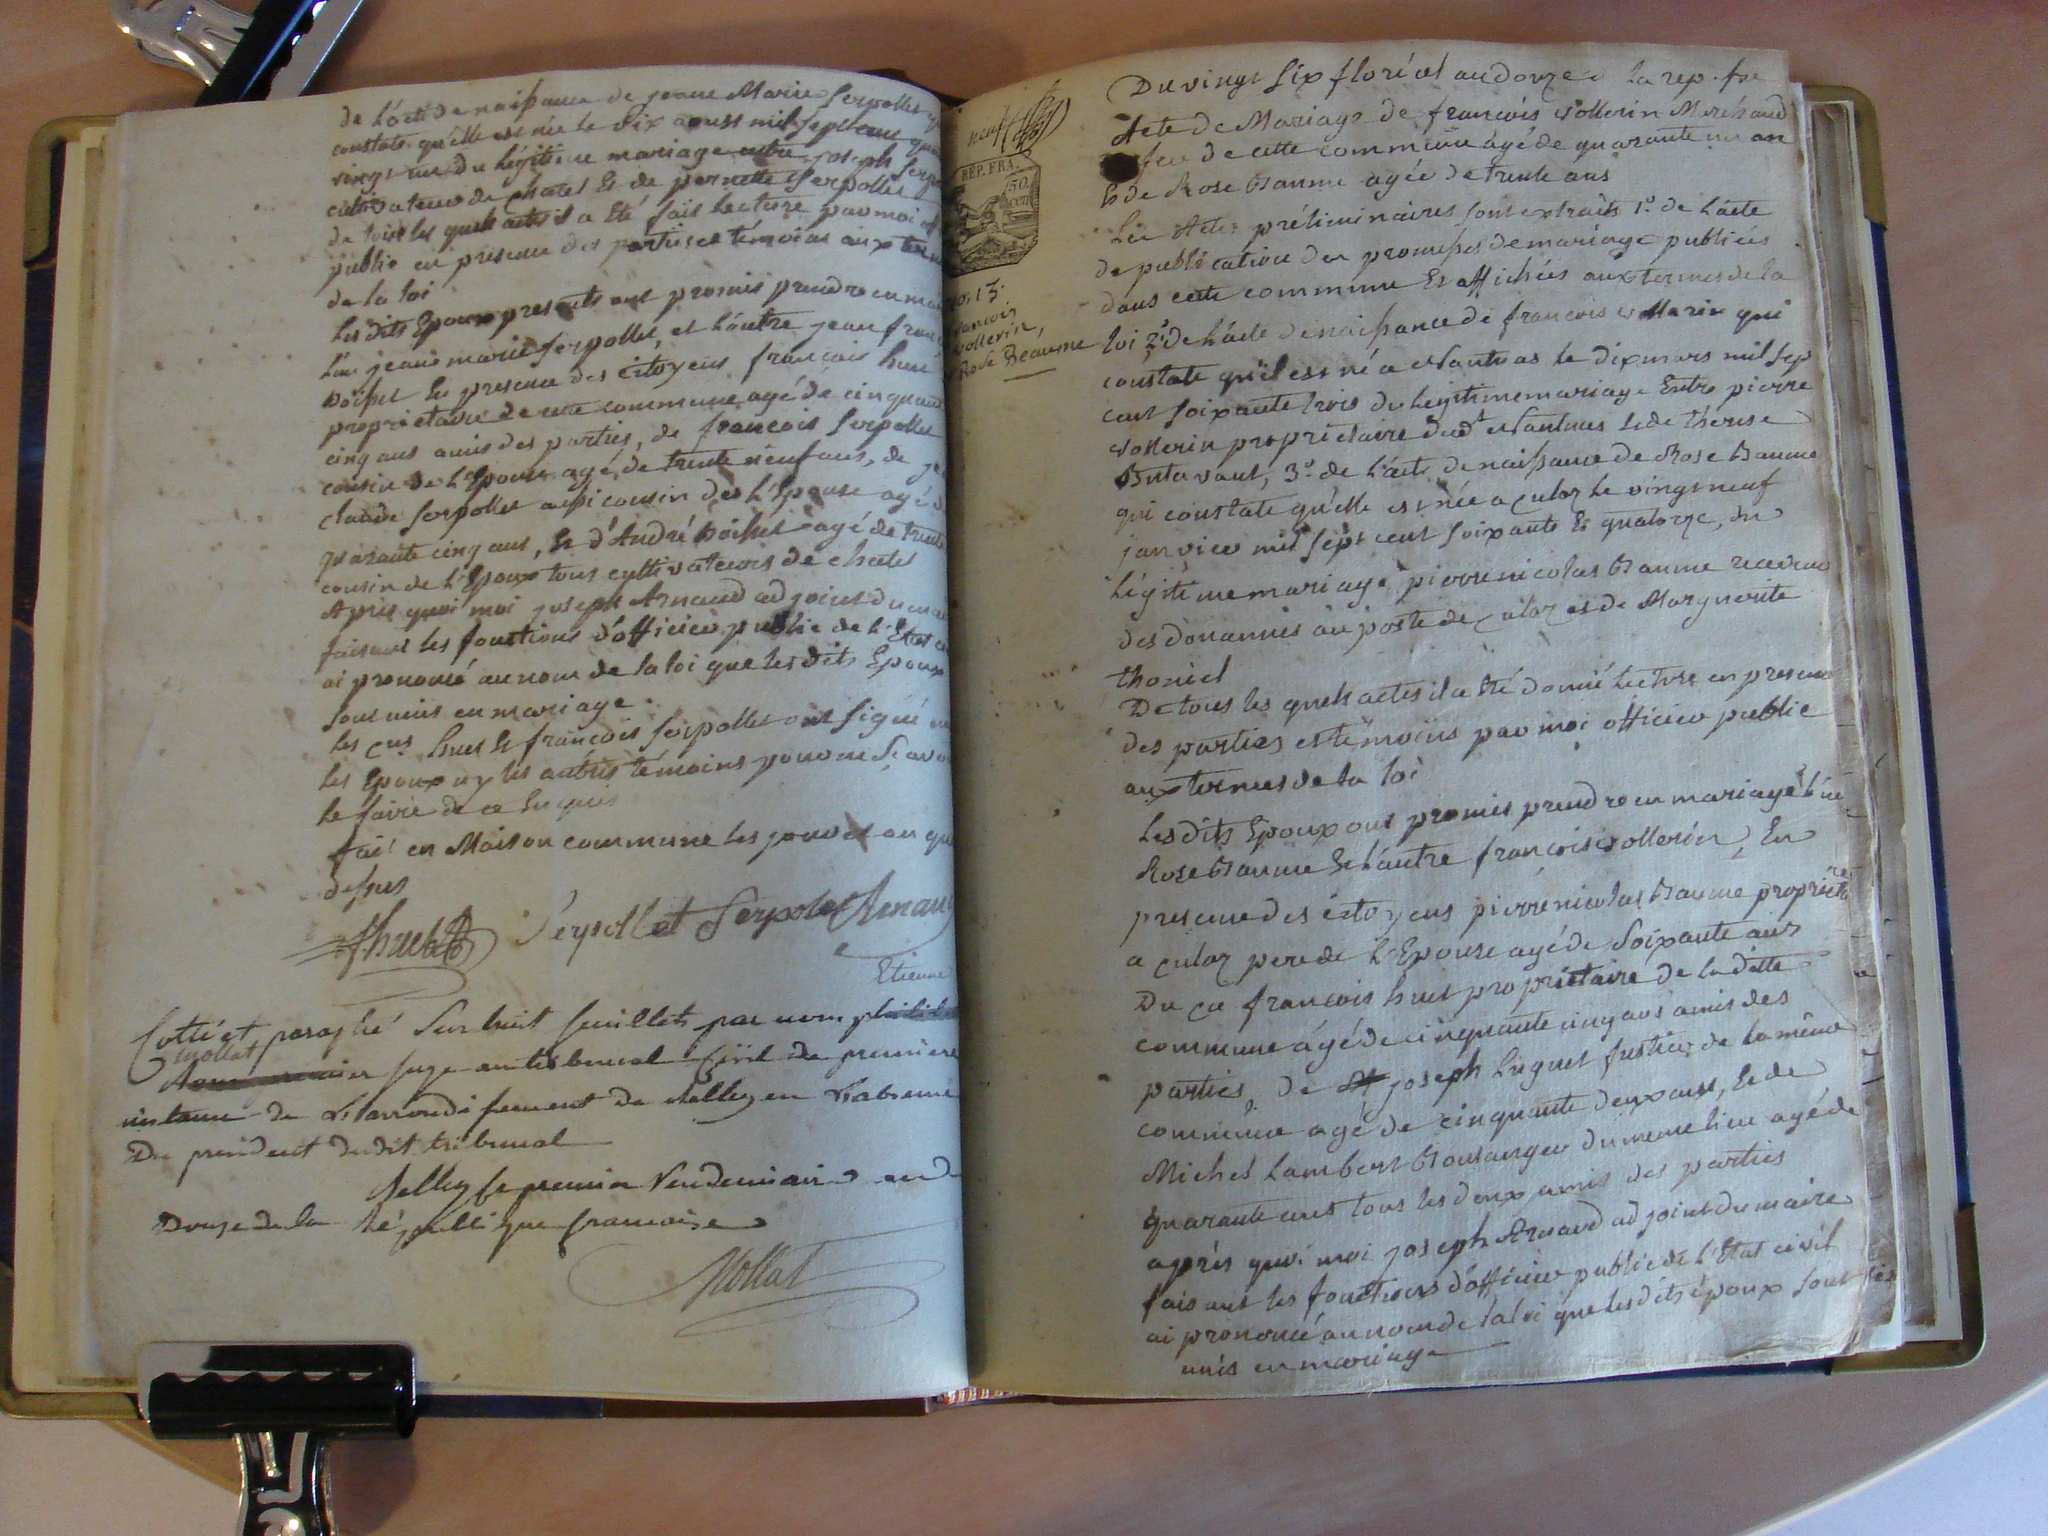 de l'acte de naissance de jeanne Marie Serpollet
constate qu'elle est née le dix aoust mil sept cent
vingt un du légitime mariage entre joseph
cultivateur de chatel Et de pernette Serpollet
de tous les quels actes il a Eté fait lecture par moi
public en presence des parties et témoins aux
de la loi
les dits Epoux presents ont promis prendre en
l'un jeanne marie Serpollet, et l'autre jean
En presence des citoyens françois huet
proprietaire de cette commune agé de cinquante
cinq ans amis des parties, de françois Serpollet
cousin de l'Epouse agé de trente neuf ans, de
claude Serpollet aussi cousin de l'Epouse agé
quarante cinq ans, Et d'André agé de trente
cousin de l'Epoux tous cultivateurs de chatel
Apres quoi moi joseph Arnaud adjoint du
faisant les fonctions d'officier public de l'Etat
ai prononcé au nom de la loi que les dits Epoux
sont unis en mariage.
les cns huet Et françois Serpollet ont signé
les Epoux ny les autres témoins pour ne Sçavoir
le faire de ce Enquis
fait en Maison commune les jour et an que
dessus
fhuet Serpollet Arnaud
Etienne
Cotté et paraphé Sur huit feuillets par nous
Mollat
juge au tribunal Civil de premiere
instance de L'arrondissement de Belley en L'absence
Du president dudit tribunal
Belley le premier Vendemiaire an
Douze de la République francaise
Mollat
neuf
REP. FRA.
50
cen
no. 13.
francois
vollerin,
Rose Beaume
Du vingt Six floréal an douze de la rep. fse
Acte de Mariage de françois vollerin Marchand
de cette commune âgé de quarante un an
Et de Rose Baume agée de trente ans
Les Actes préliminaires sont extraits 1.° de l'acte
de publication des promesses de mariage publiées
dans cette commune Et affichées aux termes de la
loi 2.° de l'acte de naissance de françois Marin qui
constate qu'il est né a Nantuas le dix mars mil sep
cent soixante trois du légitime mariage Entre pierre
vollerin proprietaire dud.t Nantuas Et de therese
Butavant, 3.° de l'acte de naissance de Rose Baume
qui constate qu'elle est née a Culoz le vingt neuf
janvier mil sept cent soixante Et quatorze, du
légitime mariage, pierre nicolas Baume receveur
des douannes au poste de Culoz et de Marguerite
thoniel
De tous les quels actes il a Eté donné lecture en presence
des parties et témoins par moi officier public
aux termes de la loi
les dits Epoux ont promis prendre en mariage l'une
Rose Baume Et l'autre françois vollerin, En
presence des citoyens pierre nicolas Baume propriétre
a Culoz pere de l'Epouse agé de Soixante ans
Du cn françois huet proprietaire de la ditte
commune âgé de cinquante cinq ans amis des
parties, de joseph huguet justice de la même
commune agé de cinquante deux ans, Et de
Michel Lambert Boulanger du meme lieu agé de
quarante ans tous les deux amis des parties
après quoi moi joseph Arnaud adjoint du maire
faisant les fonctions d'officier public de l'Etat civil
ai prononcé au nom de la loi que les dits époux sont
unis en mariage